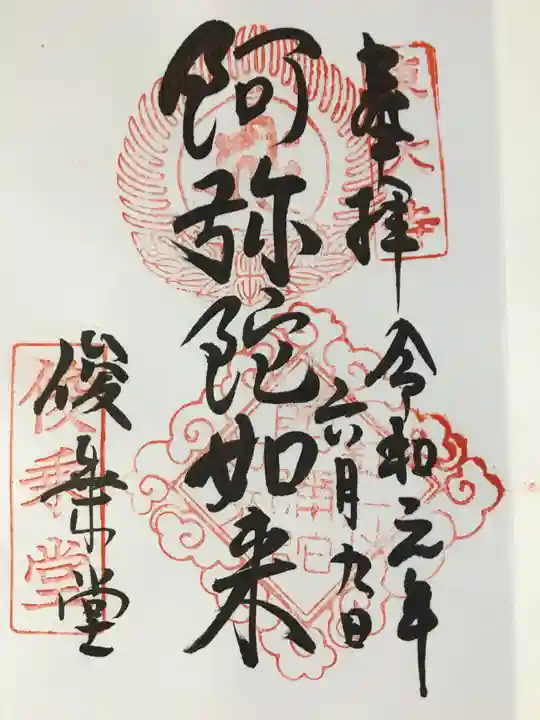 奉拝
東大寺
令和元年
六月九日
阿弥陀如来
俊乗堂
俊乗堂